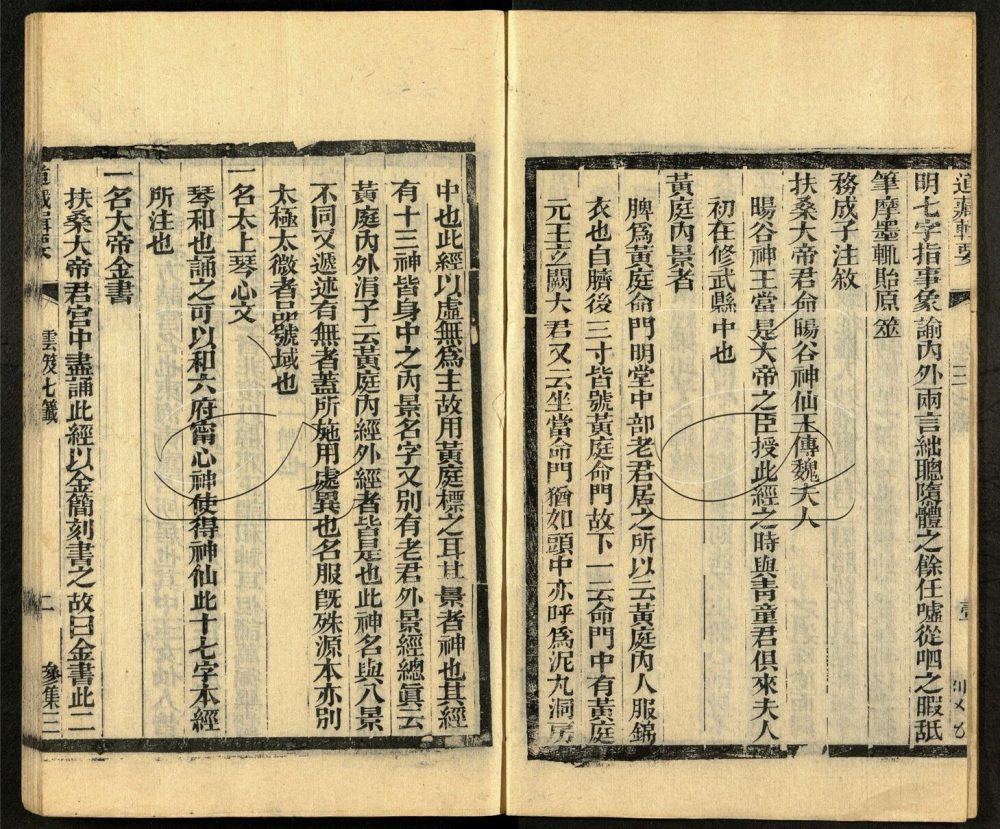 道藏輯要
明七字指事象諭內外兩言絀聰隳體之餘任噓從呬之暇舐
筆摩墨輒貽原筮
務成子注敘
扶桑大帝君命暘谷神仙王傳魏夫人
暘谷神王當是大帝之臣授此經之時與青童君俱來夫人
初在修武縣中也
黃庭內景者
脾爲黃庭命門明堂中部老君居之所以云黃庭內人服錦
衣也自臍後三寸皆號黃庭命門故下一云命門中有黃庭
元王立闕大君又云坐當命門猶如頭中亦呼爲泥丸洞房
中也此經以虛無爲主故用黃庭標之耳其景者神也其經
有十三神皆身中之內景名字又別有老君外景經總眞云
黃庭內外涓子云黃庭內經外經者皆是也此神名與八景
不同又遞述有無者蓋所施用處異也名服旣殊源本亦別
太極太微者品號域也
一名太上琴心文
琴和也誦之可以和六府甯心神使得神仙此十七字本經
所注也
一名大帝金書
扶桑大帝君宮中盡誦此經以金簡刻書之故曰金書此二
道藏輯要
雲笈七籤
二
參集三